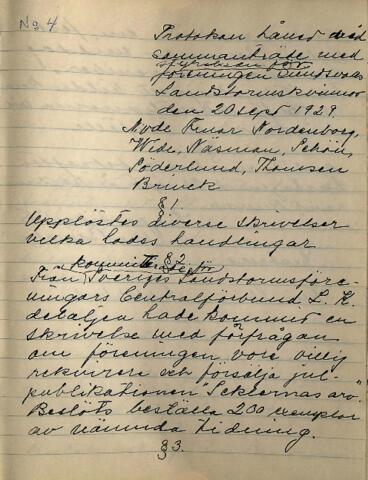 No 4
Protokoll hållet vid
sammanträde med
styrelsen för
föreningen Sundsvalls
Landstormskvinnor
den 20 sept 1929.
Nvde Fruar Nordenborg,
Wede, Näsman, Schön,
Söderlund, Thomsen
Brinck
§ 1.
Upplästes diverse skrivelser
vilka lades handlingar
§ 2.
kommitterade för
Från Sveriges Landstormsföre-
ningars Centralförbund L. K.
detaljen hade kommit en
skrivelse med förfrågan
om föreningen vore villig
rekvirera och försälja jul-
publikationen "Seklernas arv".
Beslöts beställa 200 exemplar
av nämnda tidning.
§ 3.